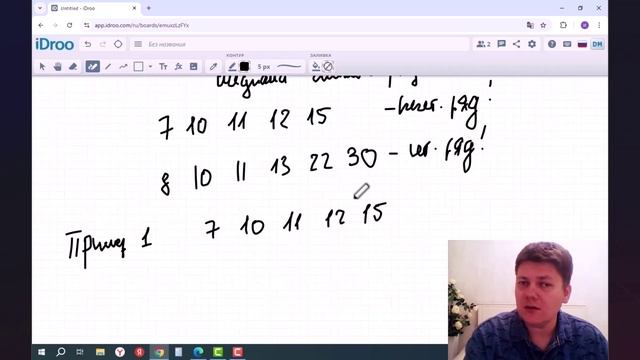 Untitled - iDroo
app.idroo.com/ru/boards/emuxzLzFYx
iDroo
Без названия
2
DM
КОНТУР
ЗАЛИВКА
5 px
7 10 11 12 15 - нечет. ряд!
8 10 11 13 22 30 - чет. ряд!
Пример 1 7 10 11 12 15